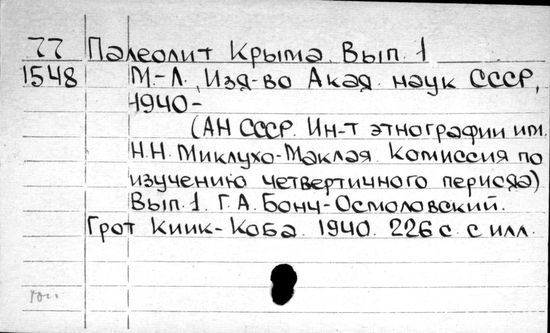 77 Палеолит Крыма. Вып. 1
1548 М.-Л., Изд-во Акад. наук СССР,
1940-
(АН СССР. Ин-т этнографии им.
Н.Н. Миклухо-Маклая. Комиссия по
изучению четвертичного периода)
Вып. 1. Г.А. Бонч-Осмоловский.
Грот Киик-Коба. 1940. 226 с. с илл.